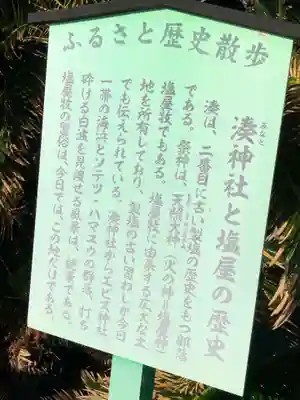 ふるさと歴史散歩
湊神社と塩屋の歴史
みなと
湊は、二番目に古い製塩の歴史をもつ部落
である。祭神は、天照大神(火の神=塩屋神)
塩屋牧でもある。塩屋牧に由来する広大な土
地を所有しており、製塩の古い習わしが今日
でも伝えられている。湊神社からエビス神社
一帯の海浜とソテツ・ハマユウの群落、打ち
砕ける白波を見渡せる風景は、絶景である。
塩屋牧の習俗は、今日では、この地だけである。